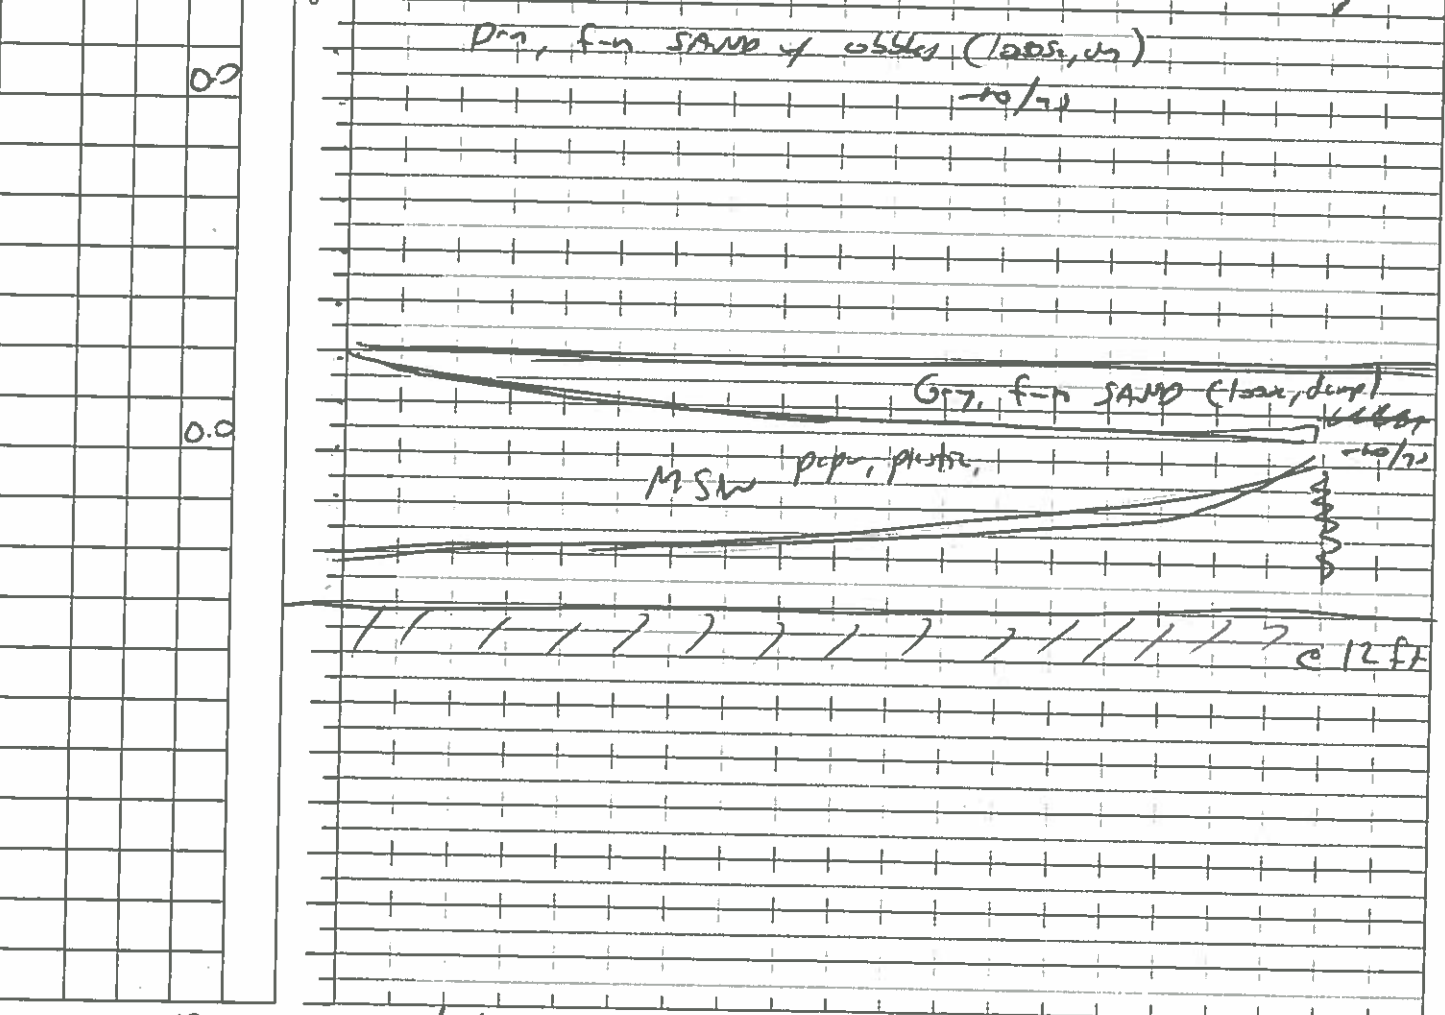 f-m SAND w/ cobbles (loose, dry)
0.0
Gry, f-m SAND (loose, damp)
0.0
MSW paper, plastic,
@ 12 ft